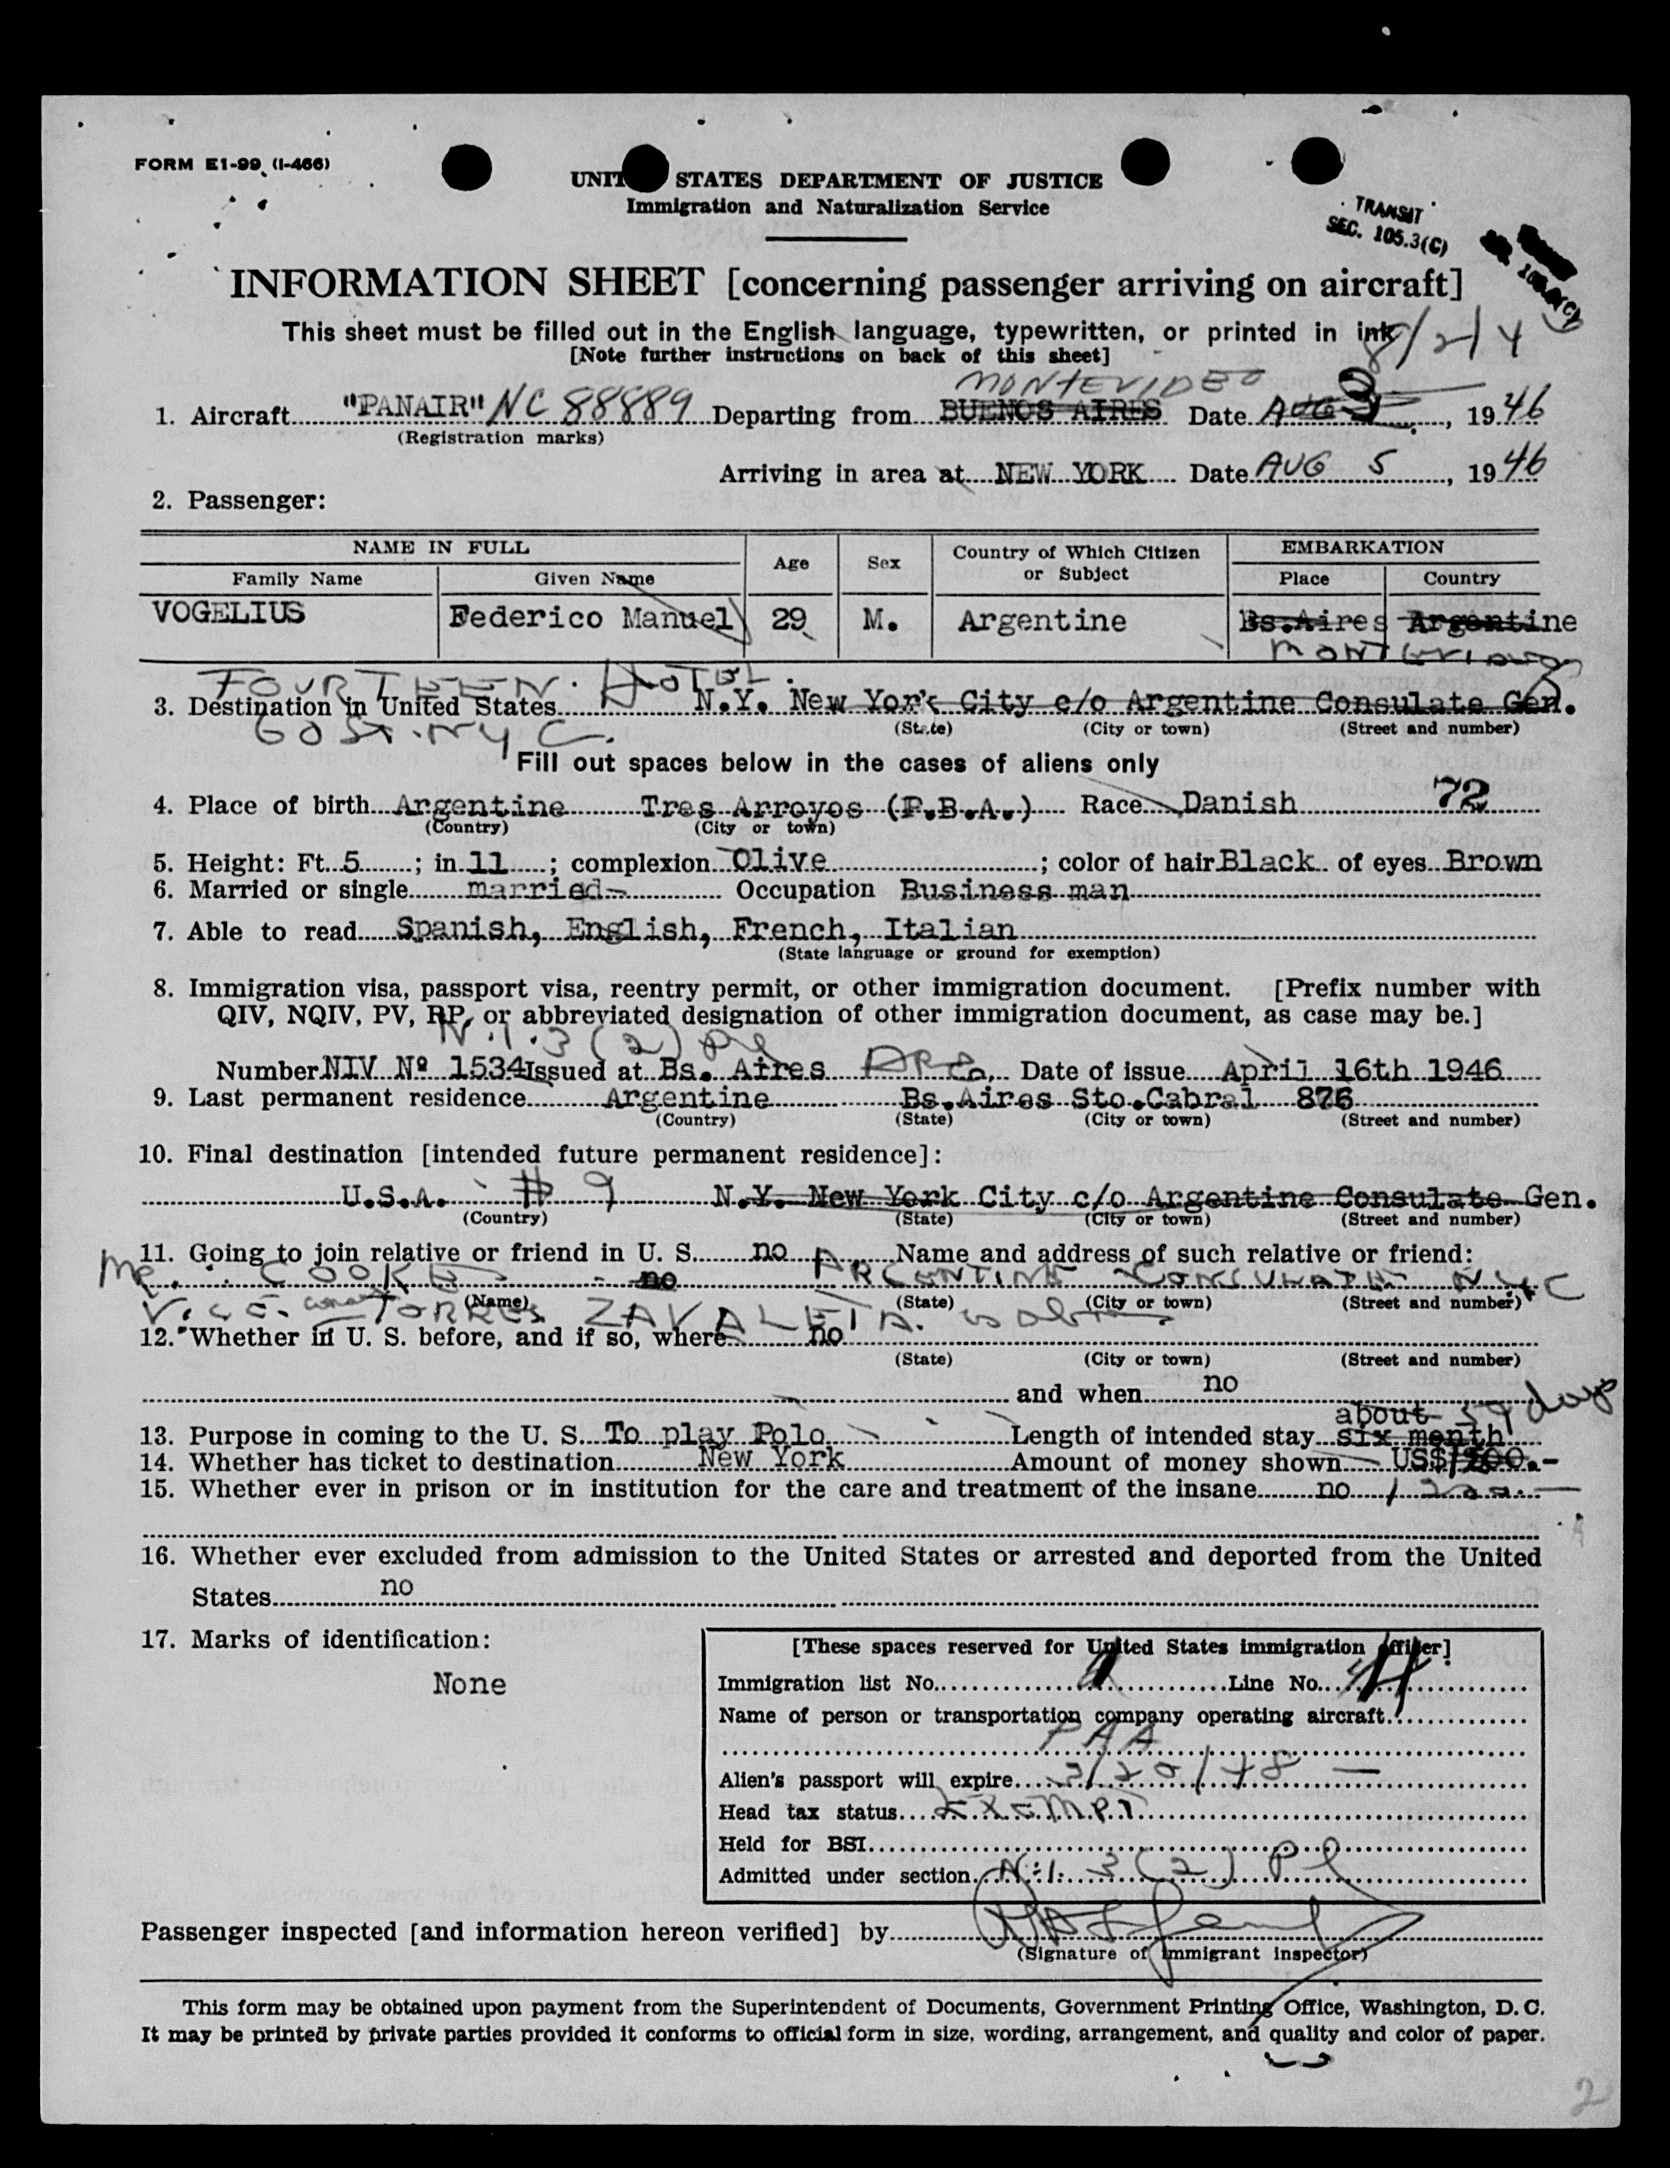 FORM E1-99 (I-466)
UNITED STATES DEPARTMENT OF JUSTICE
Immigration and Naturalization Service
TRANSIT
SEC. 105.3(C)
INFORMATION SHEET [concerning passenger arriving on aircraft]
This sheet must be filled out in the English language, typewritten, or printed in ink
[Note further instructions on back of this sheet]
8/2/46
MONTEVIDEO
1. Aircraft "PANAIR" NC 88889 Departing from BUENOS AIRES Date AUG 3, 1946
(Registration marks)
Arriving in area at NEW YORK Date AUG 5, 1946
2. Passenger:
NAME IN FULL Age Sex Country of Which Citizen or Subject EMBARKATION
Family Name Given Name Place Country
VOGELIUS Federico Manuel 29 M. Argentine Bs.Aires Argentine
MONTEVIDEO
FOURTEEN HOTEL
3. Destination in United States N.Y. New York City c/o Argentine Consulate Gen.
(State) (City or town) (Street and number)
60 ST. NYC.
Fill out spaces below in the cases of aliens only
4. Place of birth Argentine Tres Arroyos (P.B.A.) Race Danish 72
(Country) (City or town)
5. Height: Ft. 5; in. 11; complexion Olive; color of hair Black of eyes Brown
6. Married or single married Occupation Business man
7. Able to read Spanish, English, French, Italian
(State language or ground for exemption)
8. Immigration visa, passport visa, reentry permit, or other immigration document. [Prefix number with
QIV, NQIV, PV, RP, or abbreviated designation of other immigration document, as case may be.]
3(2) Pl
Number NIV Nº 1534 Issued at Bs. Aires ARG. Date of issue April 16th 1946
9. Last permanent residence Argentine Bs.Aires Sto.Cabral 876
(Country) (State) (City or town) (Street and number)
10. Final destination [intended future permanent residence]:
U.S.A. # 9 N.Y. New York City c/o Argentine Consulate Gen.
(Country) (State) (City or town) (Street and number)
11. Going to join relative or friend in U. S. no Name and address of such relative or friend:
MR. COOKE no ARGENTINE CONSULATE NYC
(Name) (State) (City or town) (Street and number)
VICE TORRES ZAVALETA
12. Whether in U. S. before, and if so, where no
(State) (City or town) (Street and number)
and when no
about 59 days
13. Purpose in coming to the U. S. To play Polo Length of intended stay six month
14. Whether has ticket to destination New York Amount of money shown US$1200.-
15. Whether ever in prison or in institution for the care and treatment of the insane no 1200.-
16. Whether ever excluded from admission to the United States or arrested and deported from the United
States no
17. Marks of identification:
None
[These spaces reserved for United States immigration officer]
Immigration list No. Line No. 4
Name of person or transportation company operating aircraft
PAA
Alien's passport will expire 3/20/48
Head tax status EXEMPT
Held for BSI
Admitted under section 3(2) Pl
Passenger inspected [and information hereon verified] by
(Signature of Immigrant Inspector)
This form may be obtained upon payment from the Superintendent of Documents, Government Printing Office, Washington, D. C.
It may be printed by private parties provided it conforms to official form in size, wording, arrangement, and quality and color of paper.
2